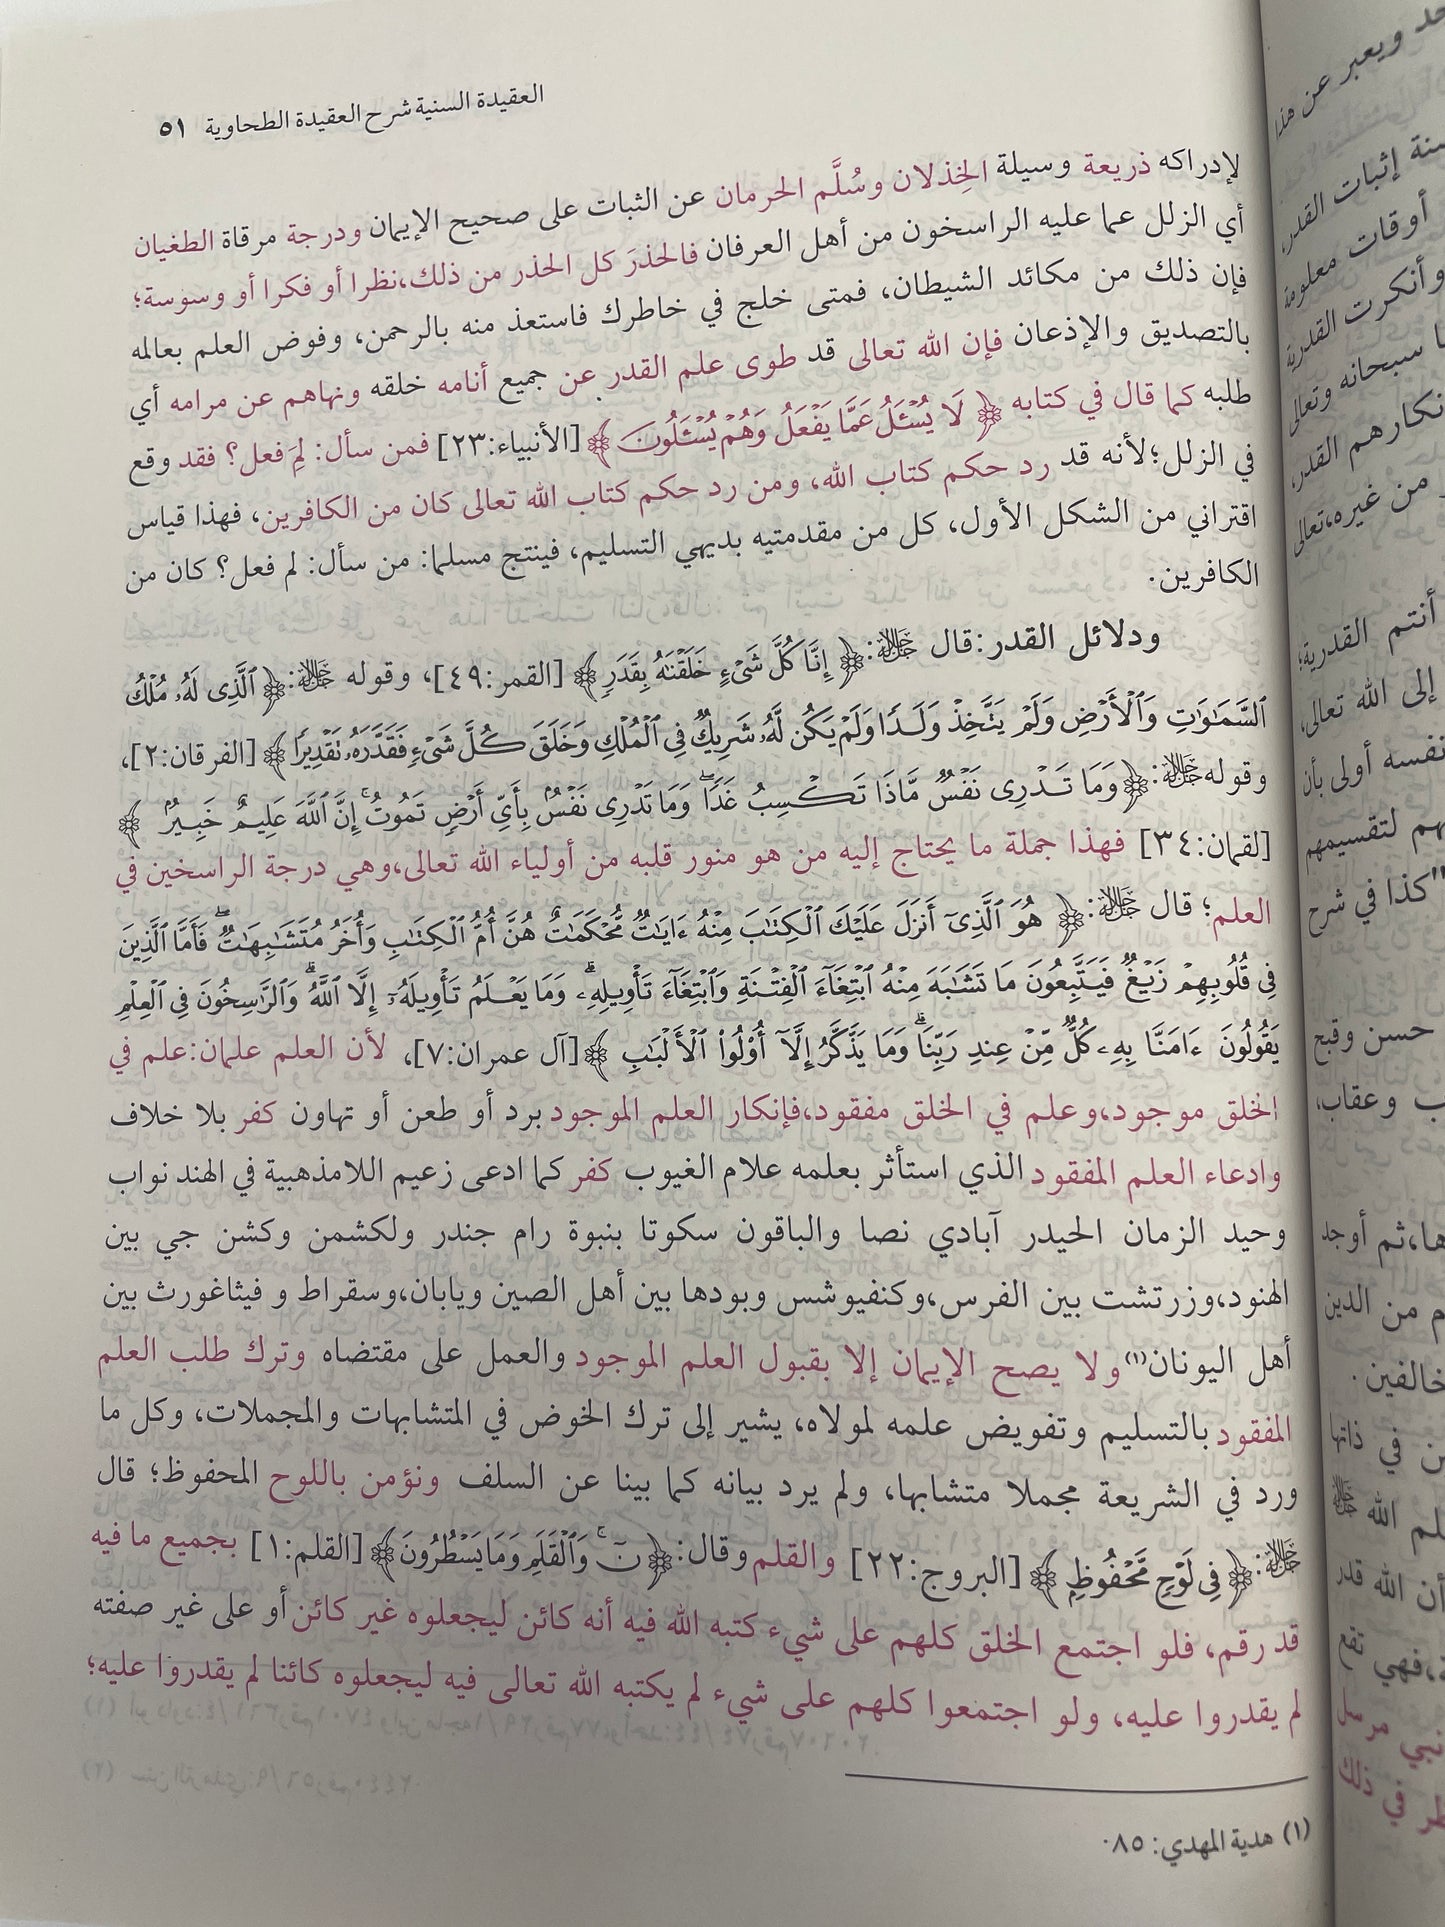 العقيدة السنية شرح العقيدة الطحاوية ٥١
لإدراكه ذريعة وسيلة الخِذلان وسُلَّم الحرمان عن الثبات على صحيح الإيمان ودرجة مرقاة الطغيان
أي الزلل عما عليه الراسخون من أهل العرفان فالحذرَ كل الحذر من ذلك،نظرا أو فكرا أو وسوسة؛
فإن ذلك من مكائد الشيطان، فمتى خلج في خاطرك فاستعذ منه بالرحمن، وفوض العلم بعالمه
بالتصديق والإذعان فإن الله تعالى قد طوى علم القدر عن جميع أنامه خلقه ونهاهم عن مرامه أي
طلبه كما قال في كتابه ﴿ لَا يُسْـَٔلُ عَمَّا يَفْعَلُ وَهُمْ يُسْـَٔلُونَ ﴾ [الأنبياء:٢٣] فمن سأل: لِمَ فعل؟ فقد وقع
في الزلل؛لأنه قد رد حكم كتاب الله، ومن رد حكم كتاب الله تعالى كان من الكافرين، فهذا قياس
اقتراني من الشكل الأول، كل من مقدمتيه بديهي التسليم، فينتج مسلما: من سأل: لم فعل؟ كان من
الكافرين.
ودلائل القدر:قال ﷻ:﴿ إِنَّا كُلَّ شَىْءٍ خَلَقْنَٰهُ بِقَدَرٍ ﴾ [القمر:٤٩]، وقوله ﷻ:﴿ ٱلَّذِى لَهُۥ مُلْكُ
ٱلسَّمَٰوَٰتِ وَٱلْأَرْضِ وَلَمْ يَتَّخِذْ وَلَدًا وَلَمْ يَكُن لَّهُۥ شَرِيكٌ فِى ٱلْمُلْكِ وَخَلَقَ كُلَّ شَىْءٍ فَقَدَّرَهُۥ تَقْدِيرًا ﴾ [الفرقان:٢]،
وقوله ﷻ:﴿ وَمَا تَدْرِى نَفْسٌ مَّاذَا تَكْسِبُ غَدًا ۖ وَمَا تَدْرِى نَفْسٌۢ بِأَىِّ أَرْضٍ تَمُوتُ ۚ إِنَّ ٱللَّهَ عَلِيمٌ خَبِيرٌۢ ﴾
[لقمان:٣٤] فهذا جملة ما يحتاج إليه من هو منور قلبه من أولياء الله تعالى،وهي درجة الراسخين في
العلم؛ قال ﷻ:﴿ هُوَ ٱلَّذِىٓ أَنزَلَ عَلَيْكَ ٱلْكِتَٰبَ مِنْهُ ءَايَٰتٌ مُّحْكَمَٰتٌ هُنَّ أُمُّ ٱلْكِتَٰبِ وَأُخَرُ مُتَشَٰبِهَٰتٌ ۖ فَأَمَّا ٱلَّذِينَ
فِى قُلُوبِهِمْ زَيْغٌ فَيَتَّبِعُونَ مَا تَشَٰبَهَ مِنْهُ ٱبْتِغَآءَ ٱلْفِتْنَةِ وَٱبْتِغَآءَ تَأْوِيلِهِۦ ۗ وَمَا يَعْلَمُ تَأْوِيلَهُۥٓ إِلَّا ٱللَّهُ ۗ وَٱلرَّٰسِخُونَ فِى ٱلْعِلْمِ
يَقُولُونَ ءَامَنَّا بِهِۦ كُلٌّ مِّنْ عِندِ رَبِّنَا ۗ وَمَا يَذَّكَّرُ إِلَّآ أُو۟لُوا۟ ٱلْأَلْبَٰبِ ﴾ [آل عمران:٧]، لأن العلم علمان:علم في
الخلق موجود،وعلم في الخلق مفقود،فإنكار العلم الموجود برد أو طعن أو تهاون كفر بلا خلاف
وادعاء العلم المفقود الذي استأثر بعلمه علام الغيوب كفر كما ادعى زعيم اللامذهبية في الهند نواب
وحيد الزمان الحيدر آبادي نصا والباقون سكوتا بنبوة رام جندر ولكشمن وكشن جي بين
الهنود،وزرتشت بين الفرس،وكنفيوشس وبودها بين أهل الصين ويابان،وسقراط و فيثاغورث بين
أهل اليونان(١) ولا يصح الإيمان إلا بقبول العلم الموجود والعمل على مقتضاه وترك طلب العلم
المفقود بالتسليم وتفويض علمه لمولاه، يشير إلى ترك الخوض في المتشابهات والمجملات، وكل ما
ورد في الشريعة مجملا متشابها، ولم يرد بيانه كما بينا عن السلف ونؤمن باللوح المحفوظ؛ قال
ﷻ:﴿ فِى لَوْحٍ مَّحْفُوظٍۭ ﴾ [البروج:٢٢] والقلم وقال:﴿ نٓ ۚ وَٱلْقَلَمِ وَمَا يَسْطُرُونَ ﴾ [القلم:١] بجميع ما فيه
قد رقم، فلو اجتمع الخلق كلهم على شيء كتبه الله فيه أنه كائن ليجعلوه غير كائن أو على غير صفته
لم يقدروا عليه، ولو اجتمعوا كلهم على شيء لم يكتبه الله تعالى فيه ليجعلوه كائنا لم يقدروا عليه؛
(١) هدية المهدي: ٠٨٥
ويعبر عن هذا
إثبات القدر،
أوقات معلومة
وأنكرت القدرية
سبحانه وتعالى
القدر،
من غيره،تعالى
أنتم القدرية؛
إلى الله تعالى،
نفسه أولى بأن
لتقسيمهم
"كذا في شرح
حسن وقبح
وعقاب،
ثم أوجد
من الدين
في ذاتها
الله ﷻ
أن الله قدر
فهي تقع
نبي مرسل
في ذلك